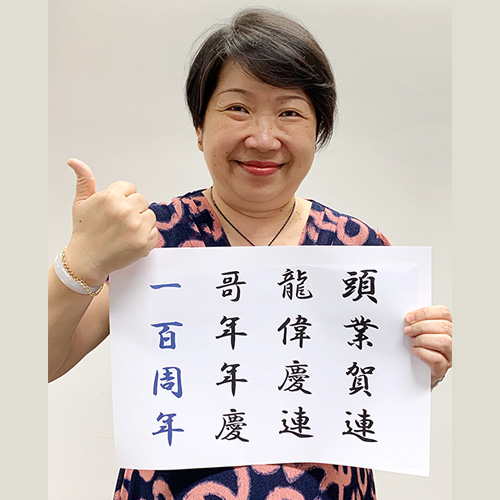 頭業賀連
龍偉慶連
哥年年慶
一百周年